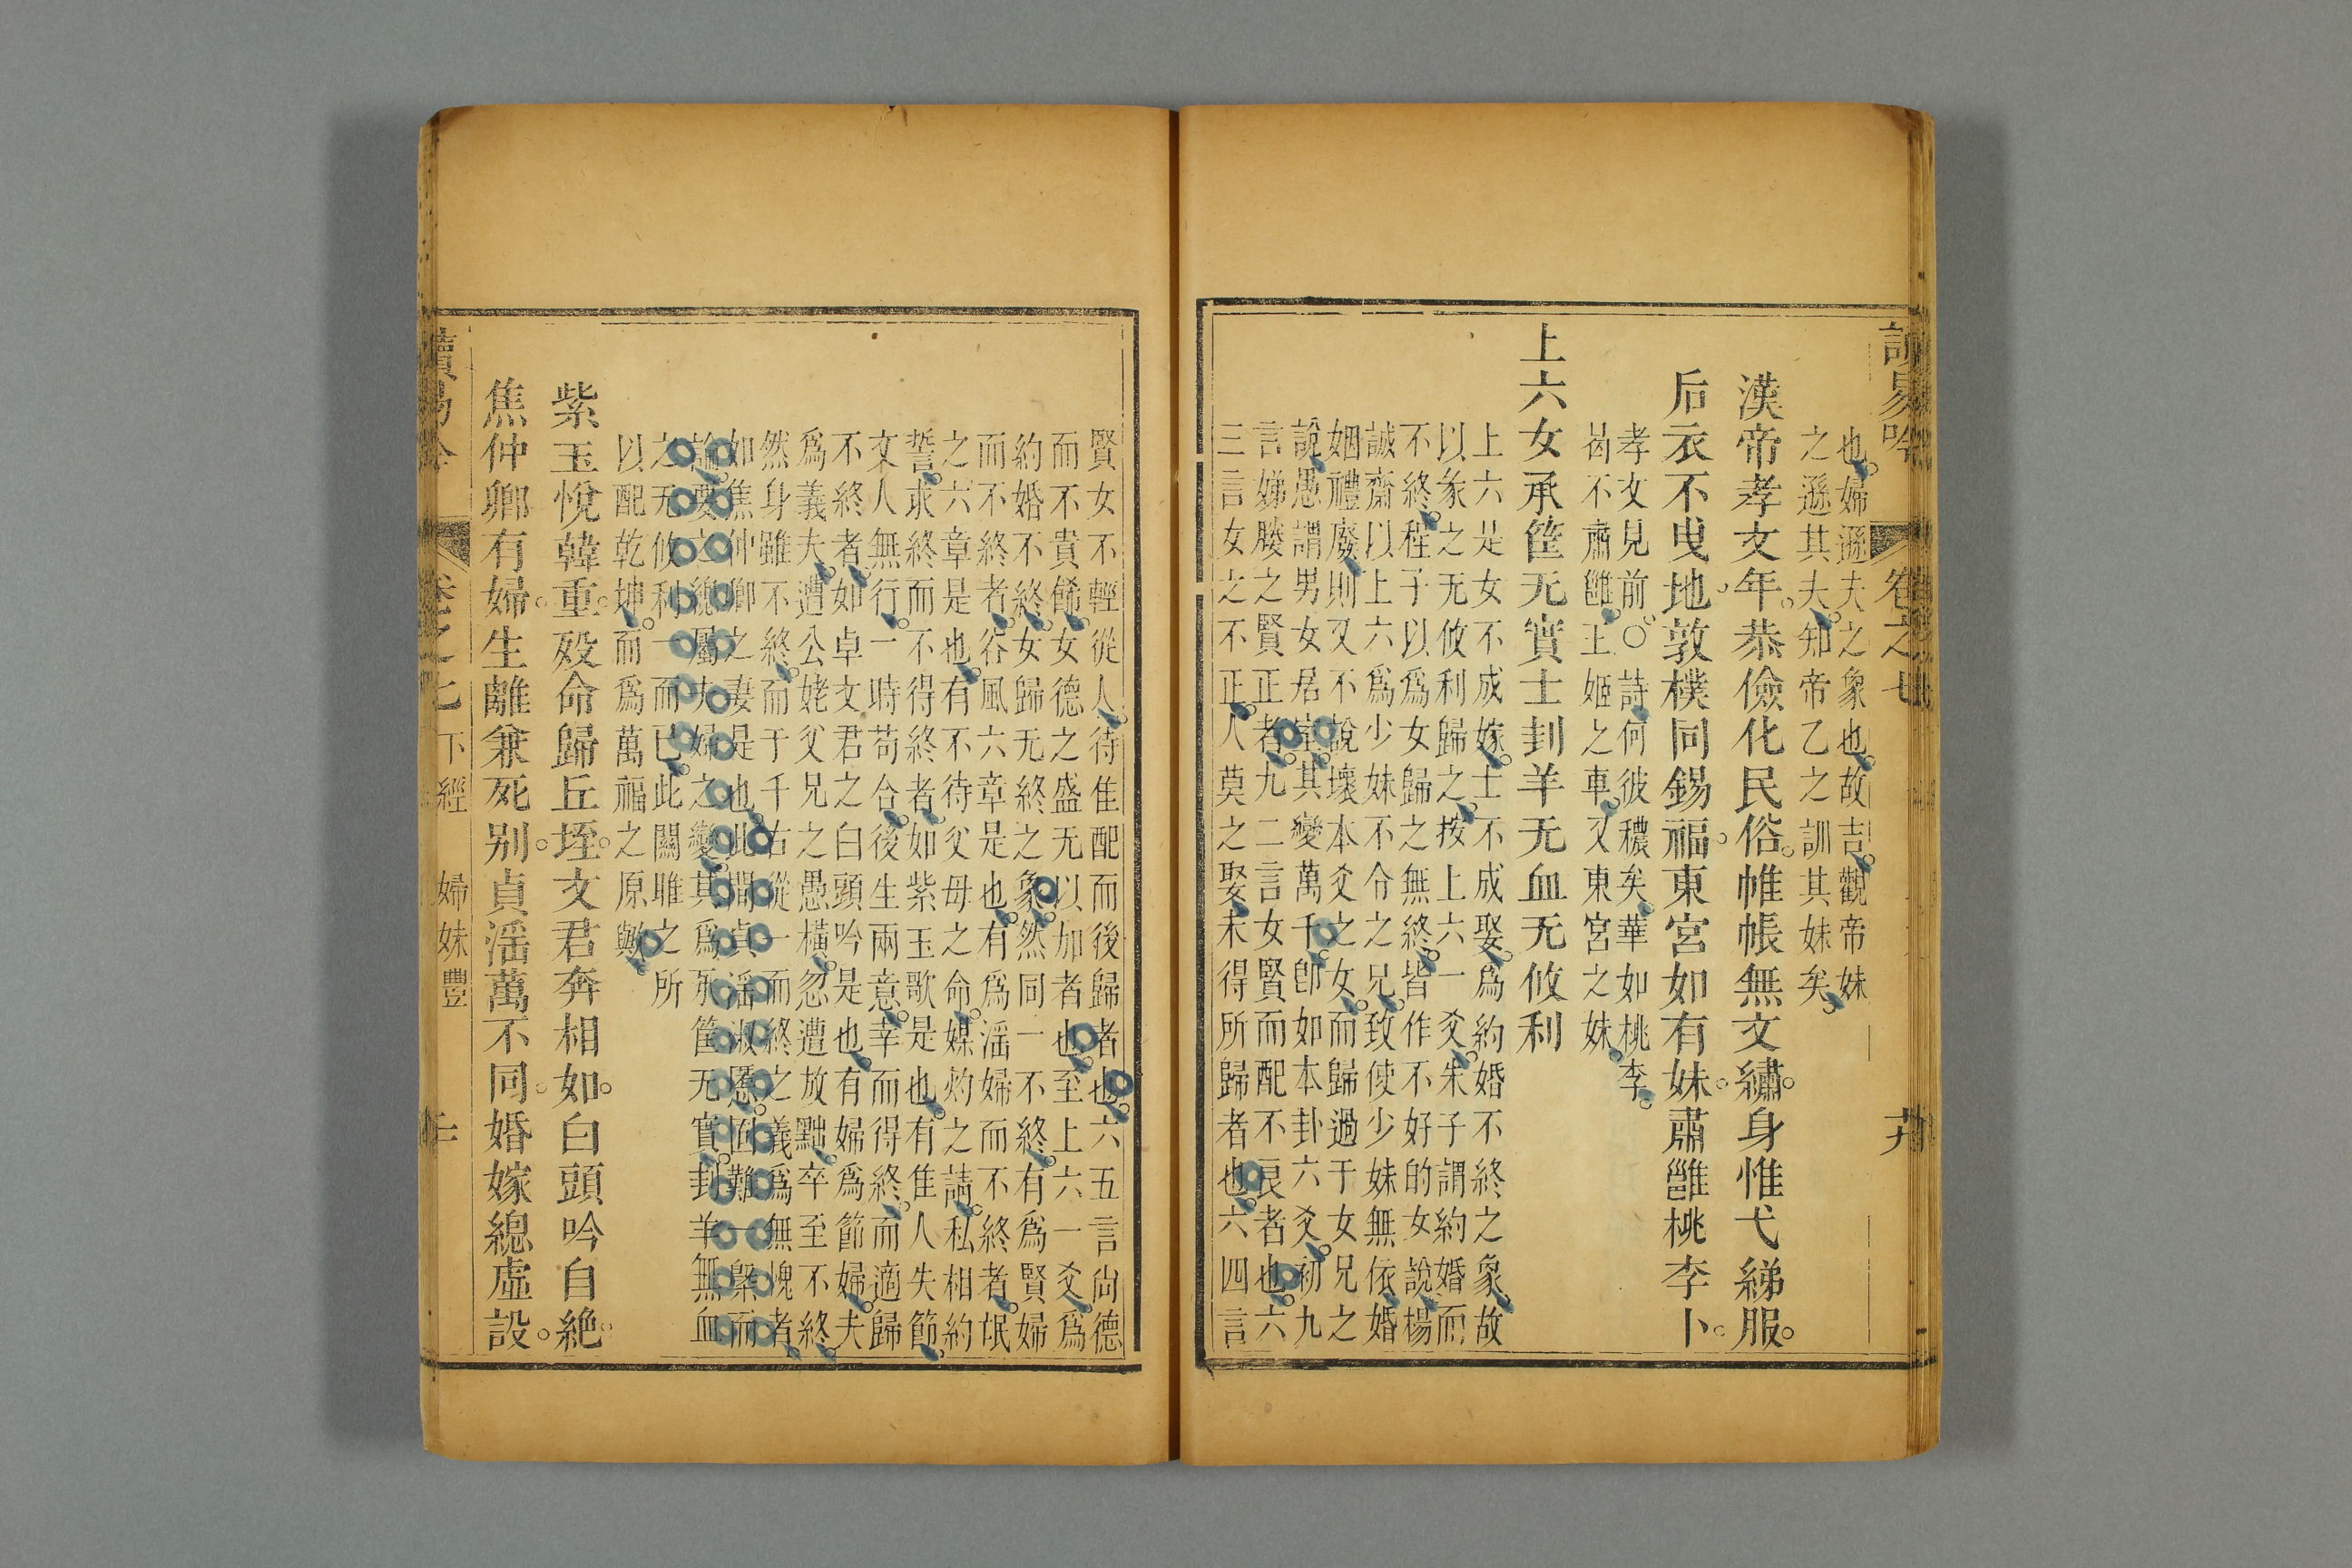 讀易吟 卷之七 廿九
也婦遜夫之象也故吉觀帝妹
之遜其夫知帝乙之訓其妹矣
漢帝孝文年恭儉化民俗帷帳無文繡身惟弋綈服
后衣不曳地敦樸同錫福東宮如有妹肅雝桃李卜
孝文見前○詩何彼穠矣華如桃李
曷不肅雝王姬之車又東宮之妹
上六女承筐无實士刲羊无血无攸利
上六是女不成嫁士不成娶爲約婚不終之象故
以象之无攸利歸之按上六一爻朱子謂約婚而
不終程子以爲女歸之無終皆作不好的女說楊
誠齋以上六爲少妹不令之兄致使少妹無依婚
姻禮廢則又不說壞本爻之女而歸過于女兄之
說愚謂男女居室其變萬千卽如本卦六爻初九
言娣媵之賢正者九二言女賢而配不良者也六
三言女之不正人莫之娶未得所歸者也六四言
賢女不輕從人待隹配而後歸者也六五言尙德
而不貴餙女德之盛无以加者也至上六一爻爲
約婚不終女歸无終之象然同一不終有爲賢婦
而不終者谷風六章是也有爲淫婦而不終者氓
之六章是也有不待父母之命媒灼之請私相約
誓求終而不得終者如紫玉歌是也有隹人失節
文人無行一時苟合後生兩意幸而得終而適歸
不終者如卓文君之白頭吟是也有婦爲節婦夫
爲義夫遭公姥父兄之愚橫忽遭放黜卒至不終
然身雖不終而于千古從一而終之義爲無愧者
如焦仲卿之妻是也此間貞淫淑慝固難一槩而
論要之總屬夫婦之變其爲承筐无實刲羊無血
之无攸利一而已此關雎之所
以配乾坤而爲萬福之原歟
紫玉悅韓重殁命歸丘垤文君奔相如白頭吟自絶
焦仲卿有婦生離兼死别貞淫萬不同婚嫁總虛設
讀易吟 卷之七 下經 歸妹豐